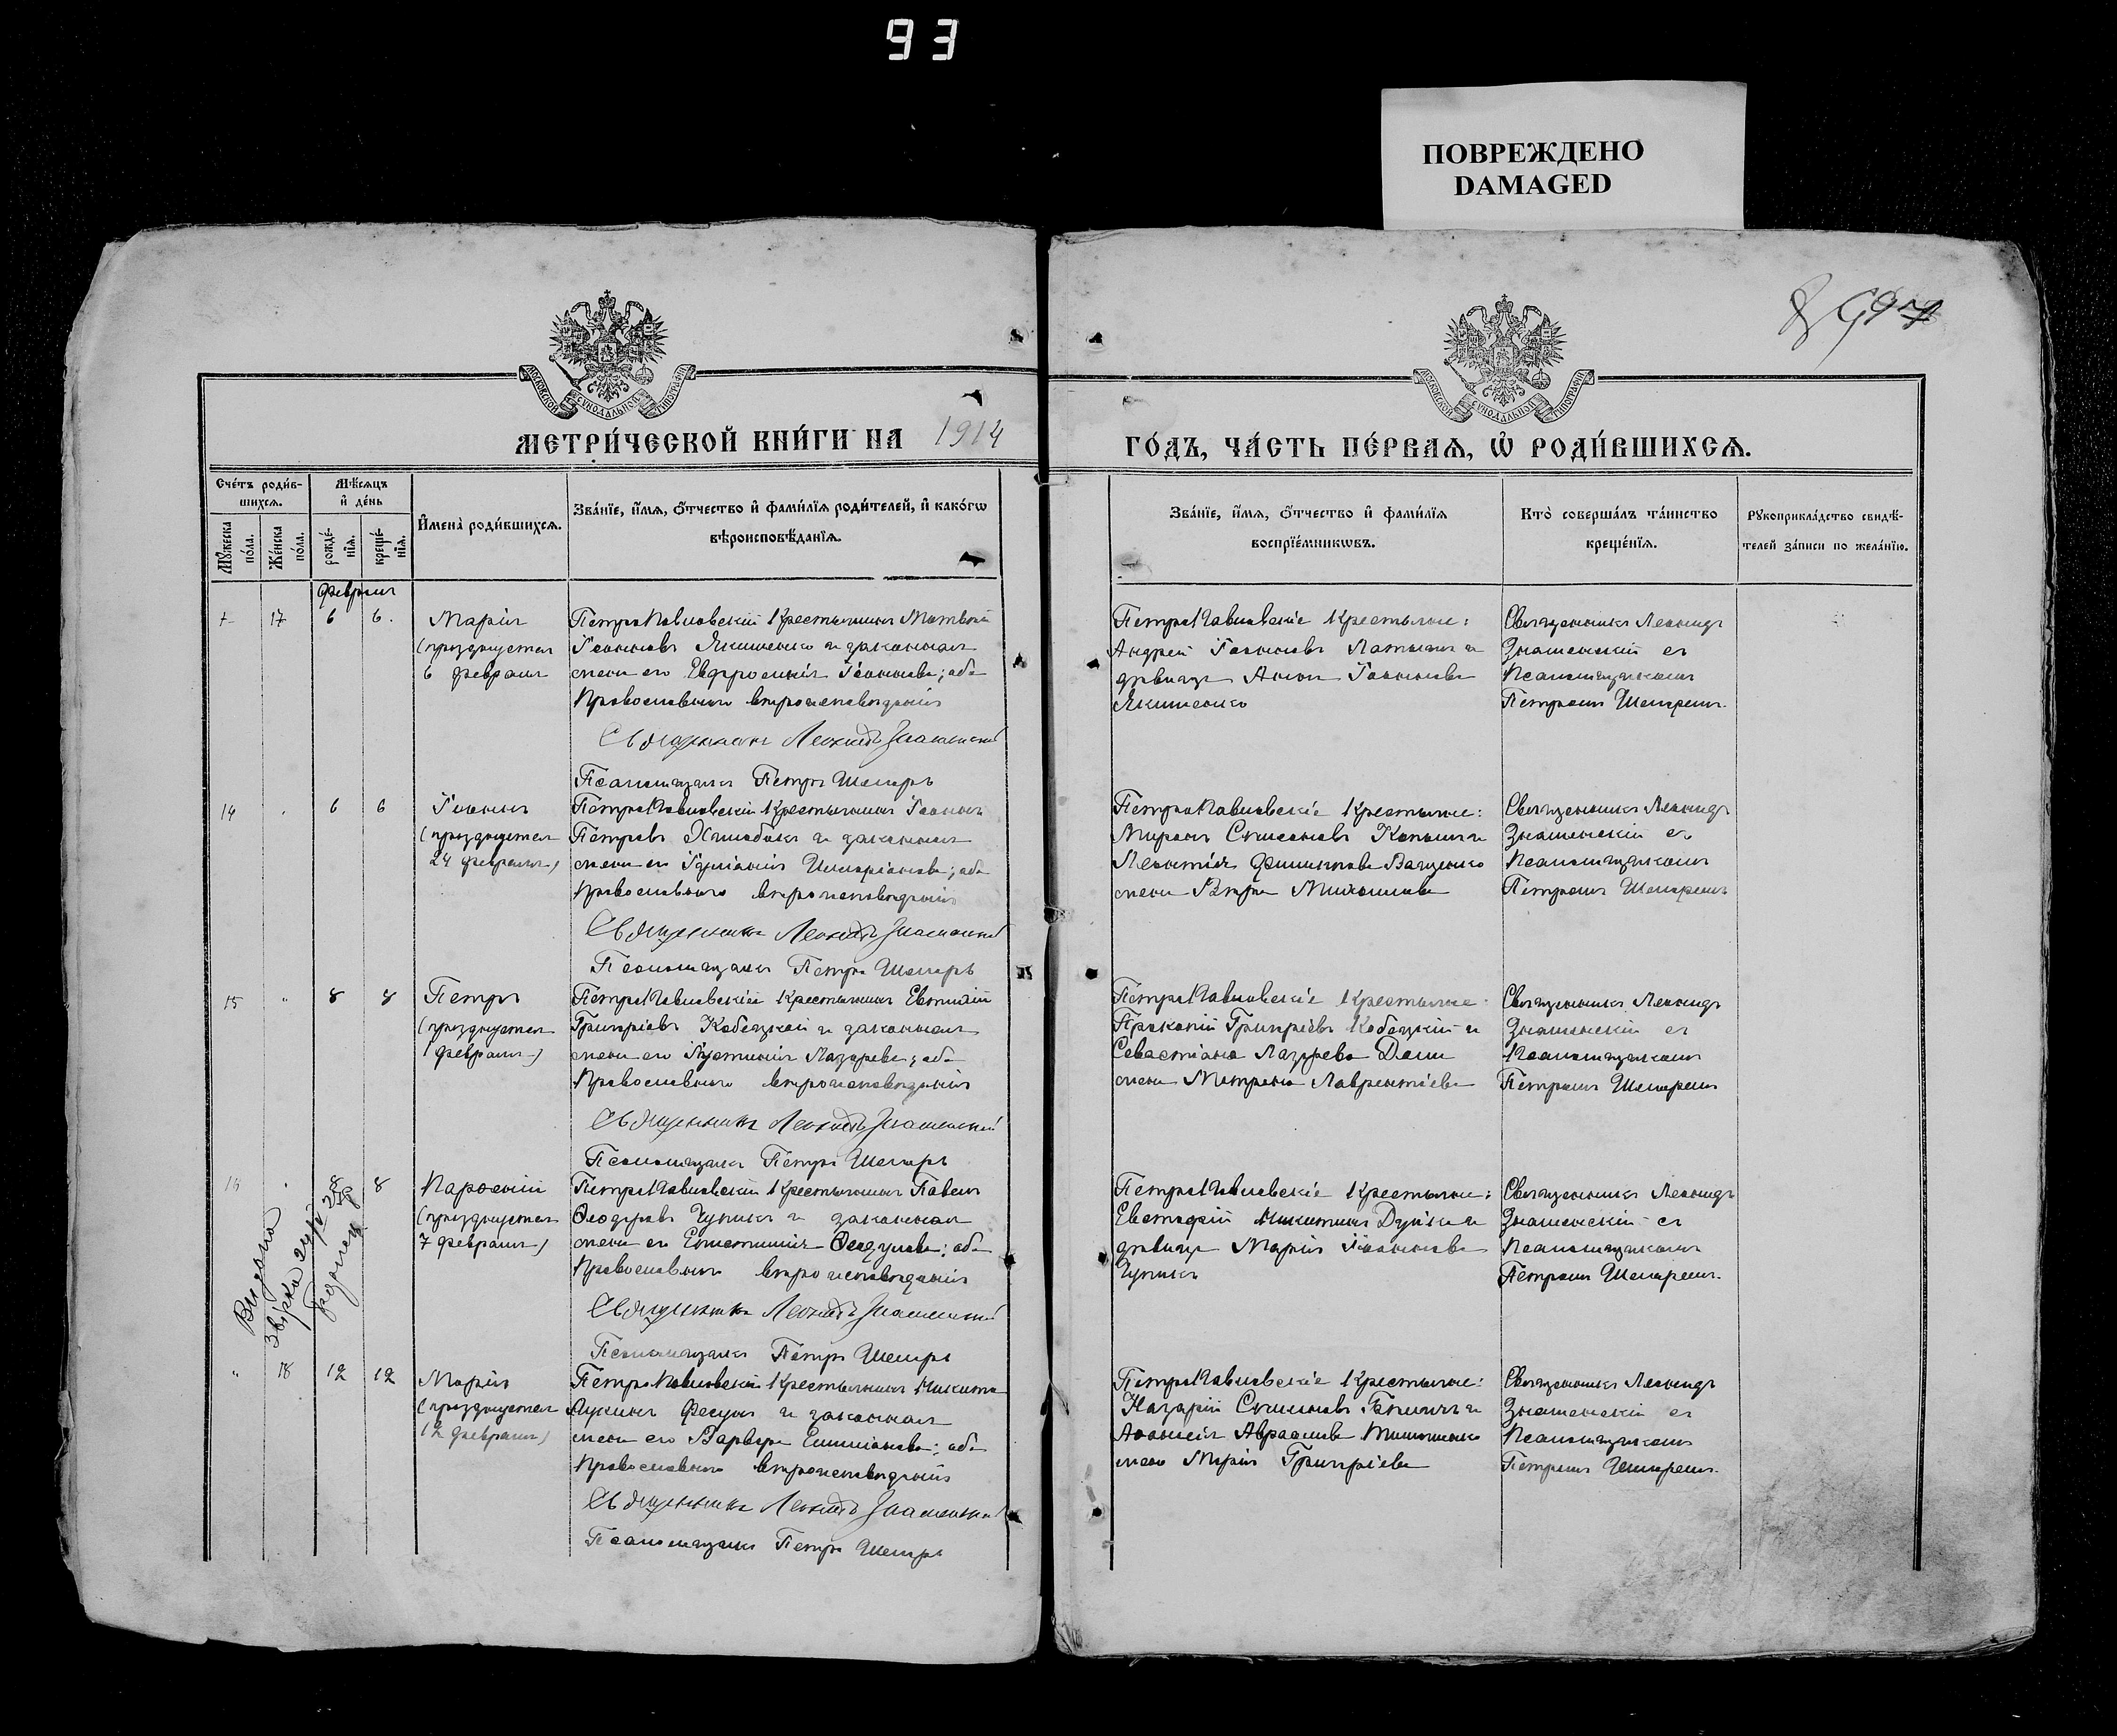 93
ПОВРЕЖДЕНО
DAMAGED
МОСКОВСКОЙ СѴНОДАЛЬНОЙ ТИПОГРАФІИ
МОСКОВСКОЙ СѴНОДАЛЬНОЙ ТИПОГРАФІИ
МЕТРИ́ЧЕСКОЙ КНИ́ГИ НА 1914
ГО́ДЪ, ЧА́СТЬ ПЕ́РВАѦ, Ѡ҆ РОДИ́ВШИХСѦ.
Сче́тъ роди́в-
шихсѧ.
Мꙋ́жеска
по́ла.
Же́нска
по́ла.
Мѣ́сѧцъ
и҆ де́нь
рожде́-
нїѧ.
креще́-
нїѧ.
И҆мена̀ роди́вшихсѧ.
Зва́нїе, и҆́мѧ, ѻ҆́тчество и҆ фами́лїѧ роди́телей, и҆ како́гѡ
вѣроисповѣ́данїѧ.
Зва́нїе, и҆́мѧ, ѻ҆́тчество и҆ фами́лїѧ
воспрїе́мникѡвъ.
Кто̀ соверша́лъ та́инство
креще́нїѧ.
Рꙋкоприкла́дство свидѣ́-
телей за́писи по жела́нїю.
февраль
17 6 6. Марія
(празднуется
6 февраля
ПетроПавловскій крестьянинъ Матвей
Іоанновъ Якименко и законная
жена его Евфросинія Іоаннова; оба
Православнаго вѣроисповѣданія
Священникъ Леонидъ Знаменскій
Псаломщикъ Петръ Шемаръ
ПетроПавловскіе крестьяне:
Андрей Іоанновъ и
дѣвица Анна Іоаннова
Якименко
Священникъ Леонидъ
Знаменскій съ
Псаломщикомъ
Петромъ Шемаремъ.
14 6 6 Іоаннъ
(празднуется
24 февраля)
ПетроПавловскій крестьянинъ Іоаннъ
Петровъ и законная
жена его Іуліанія; оба
Православнаго вѣроисповѣданія
Священникъ Леонидъ Знаменскій
Псаломщикъ Петръ Шемаръ
ПетроПавловскіе крестьяне:
Миронъ и
Леонтія Филиппова Ващенко
жена Вѣра
Священникъ Леонидъ
Знаменскій съ
Псаломщикомъ
Петромъ Шемаремъ
15 " 8 8 Петръ
(празднуется
февраля)
ПетроПавловскій крестьянинъ Евтихій
Григоріевъ Кобецкой и законная
жена его Іустинія Лазарева; оба
Православнаго вѣроисповѣданія
Священникъ Леонидъ Знаменскій
Псаломщикъ Петръ Шемаръ
ПетроПавловскіе крестьяне:
Прокопій Григоріевъ Кобецкій и
Севастіана Лазарева
жена Матрона Лаврентіева
Священникъ Леонидъ
Знаменскій съ
Псаломщикомъ
Петромъ Шемаремъ
8 8 Парѳеній
(празднуется
7 февраля)
Видана
ПетроПавловскій крестьянинъ Павелъ
Ѳеодоровъ и законная
жена его; оба
Православнаго вѣроисповѣданія
Священникъ Леонидъ Знаменскій
Псаломщикъ Петръ Шемаръ
ПетроПавловскіе крестьяне:
Евстафій Никитинъ и
дѣвица Марія Іоаннова
Священникъ Леонидъ
Знаменскій съ
Псаломщикомъ
Петромъ Шемаремъ.
" 18 12 12 Марія
(празднуется
12 февраля)
ПетроПавловскій крестьянинъ Никита
Лукинъ Фесунъ и законная
жена его Варвара; оба
Православнаго вѣроисповѣданія
Священникъ Леонидъ Знаменскій
Псаломщикъ Петръ Шемаръ
ПетроПавловскіе крестьяне:
Назарій и
жена Марія Григоріева
Священникъ Леонидъ
Знаменскій съ
Псаломщикомъ
Петромъ Шемаремъ.